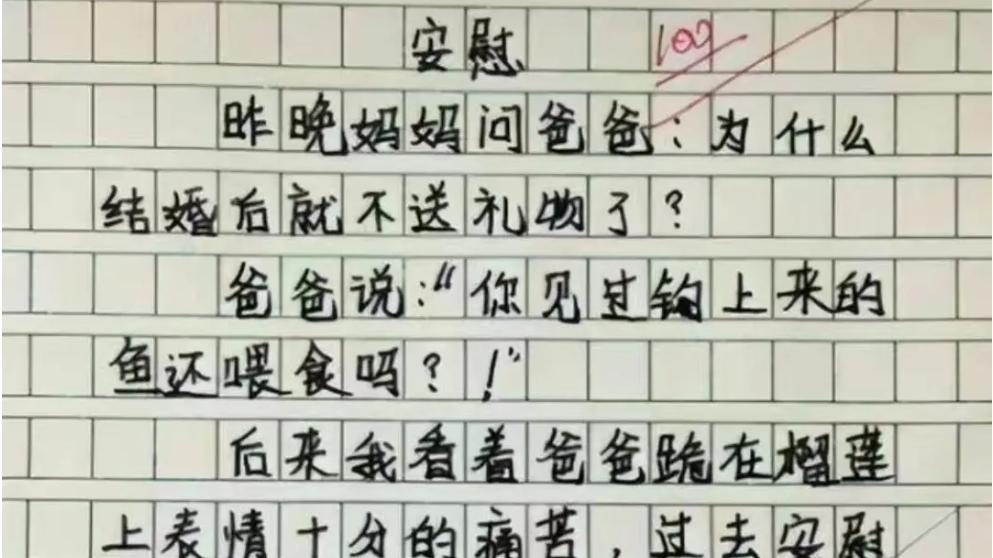 安慰 100
昨晚妈妈问爸爸：为什么
结婚后就不送礼物了？
爸爸说：“你见过钩上来的
鱼还喂食吗？！”
后来我看着爸爸跪在榴莲
上表情十分的痛苦，过去安慰